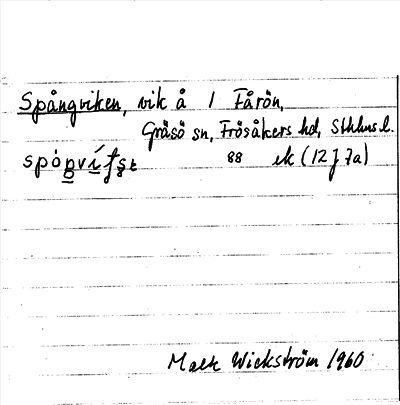 Spångviken, vik å / Fårön,
Gräsö sn, Frösåkers hd, Sthlms l.
88 ek (12 J 7a)
Wickström 1960